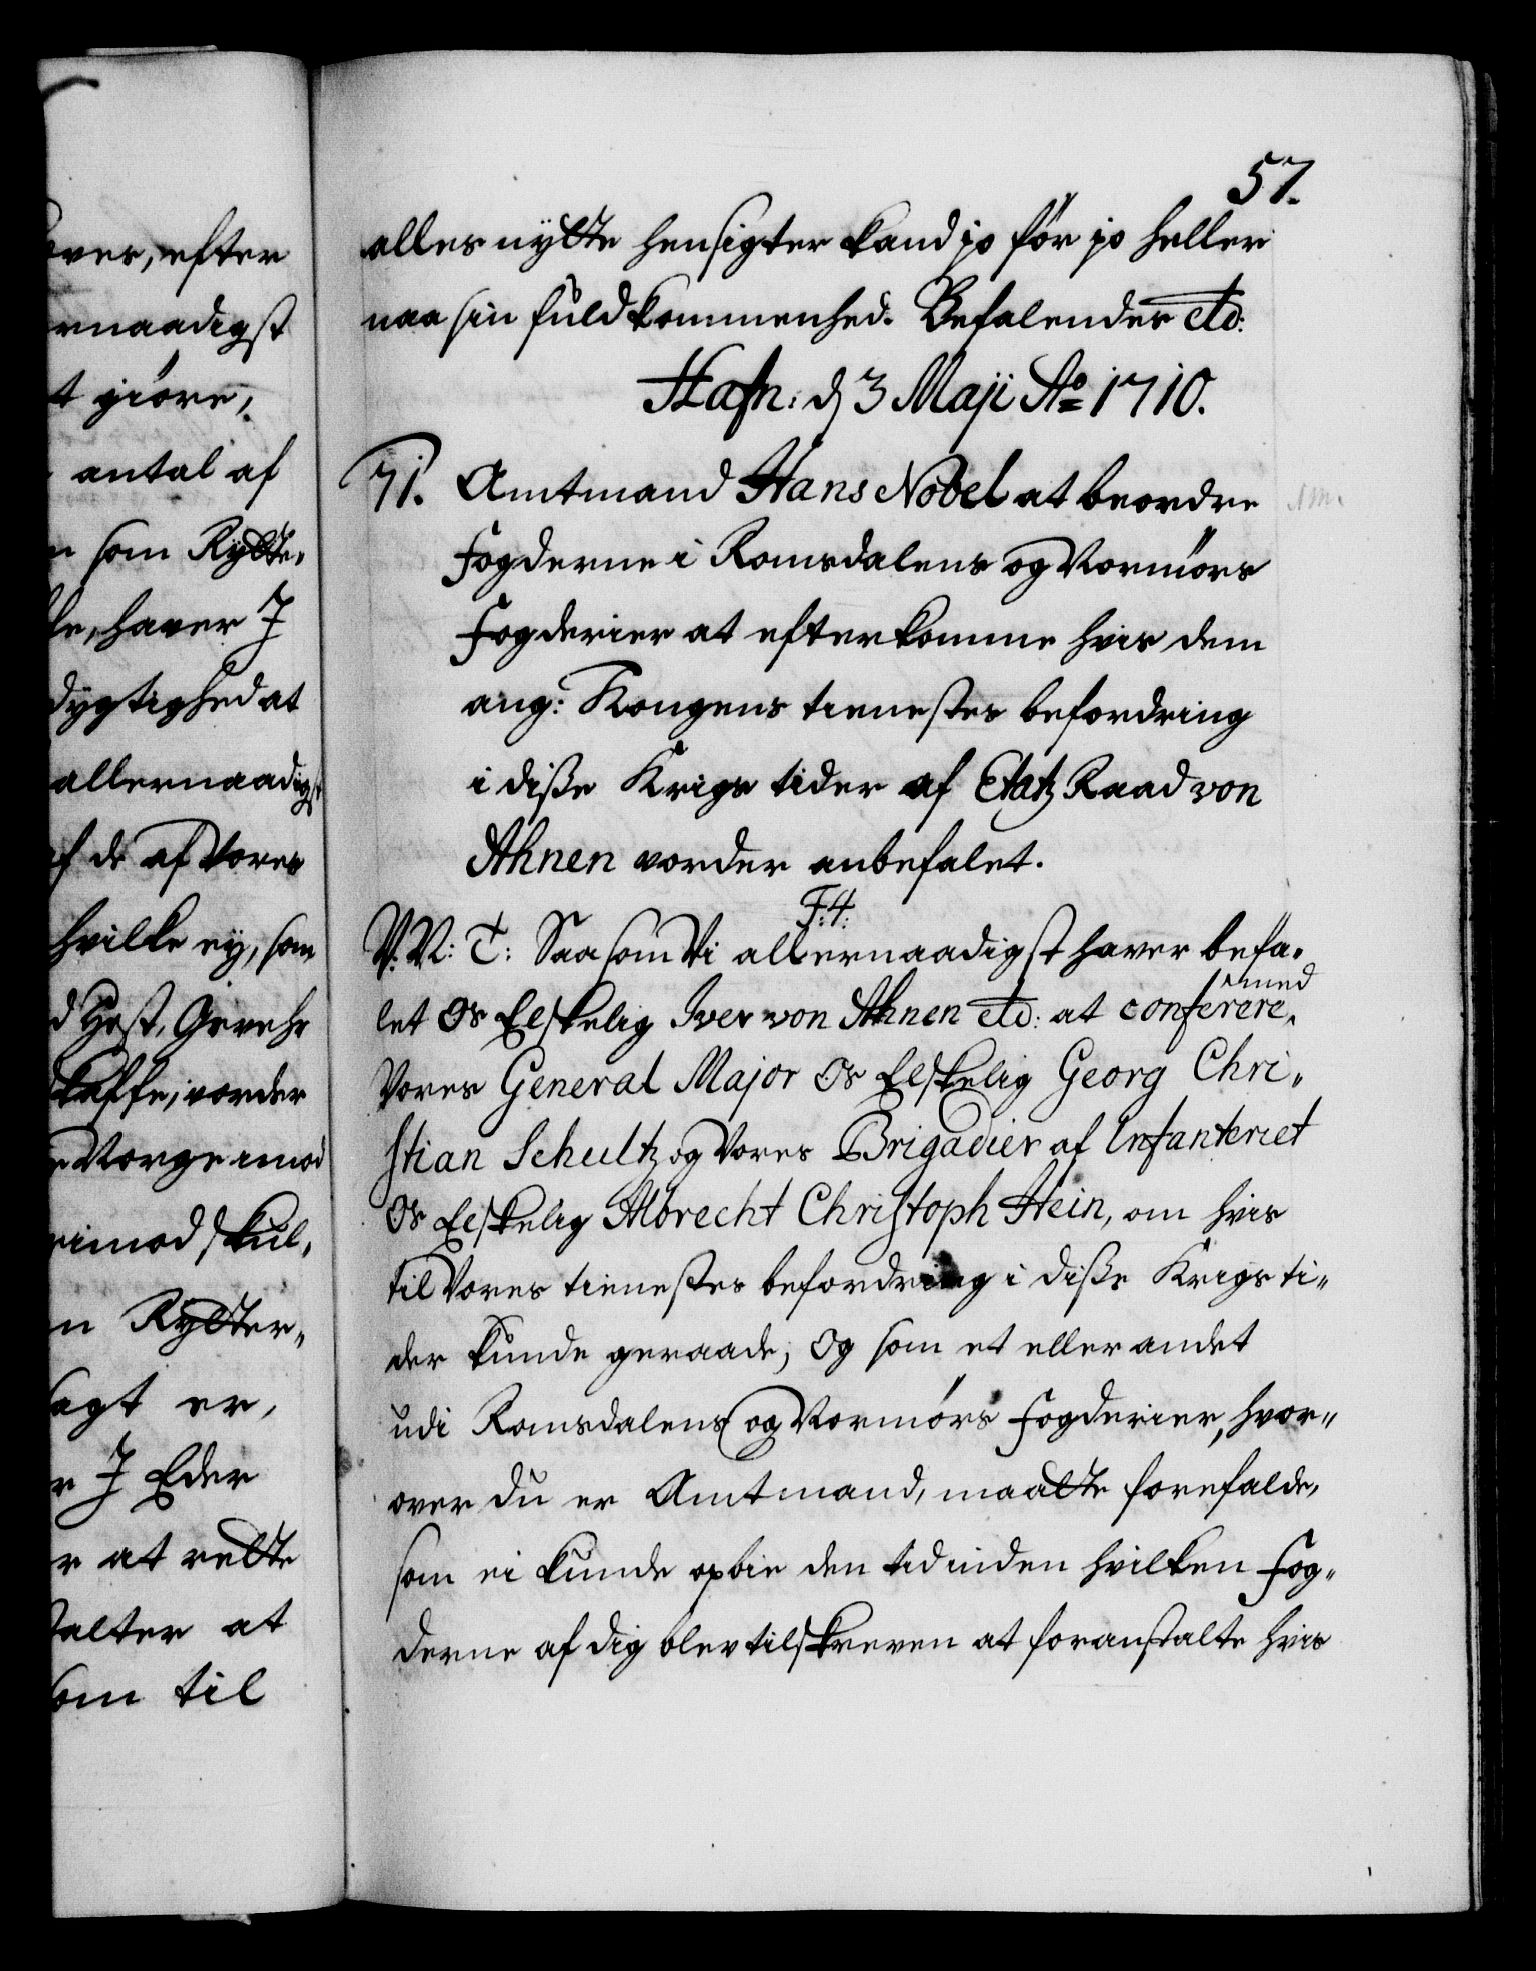 oves, efter
rnaadigst
t giöre,
antal af
n som Rytte„
le, haver J
dygtighed at
allernaadigst
af de af Vores
hvilke ey, som
d Hest, Gevehr
kaffe, vorder
Norge imod
rimod skul„
n Rytter„
sagt er,
r J Eder
r at rette
talter at
som til
57.
allernÿtte hensigter kand jo för jo heller
naa sin fuldkommenhed. Befalendes etc:
Hafn: d 3 Maji Ao 1710.
71. Amtmand Hans Nobel at beordre
Fogderne i Romsdalens og Normörs
Fogderier at efterkomme hvis dem
ang: Kongens tienestes befordring
i diße Krigs tider af Etatz Raad von
Ahnen vorder anbefalet.
F:4:
V. N: T: Saasom Vi allernaadigst haver befa„
let Os Elskelig Iver von Ahnen etc: at conferere med
Vores General Major Os Elskelig Georg Chri„
stian Schultz og Vores Brigadier af Infanteriet
Os Elskelig Albrecht Christoph Hein, om hvis
til Vores tienestes befordring i diße Krigs ti„
der kunde geraade; Og som et eller andet
udi Romsdalens og Normörs Fogderier, hvor„
over du er Amtmand, maatte forefalde,
som ei kunde opbie den tid inden hvilken Fog„
derne af dig blev tilskreven at foranstalte hvis